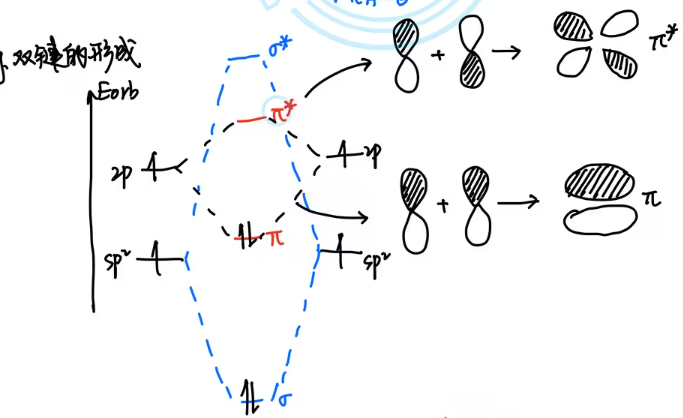 双键的形成
Eorb
σ*
π*
2p
2p
π
sp²
sp²
σ
+
→
π*
+
→
π